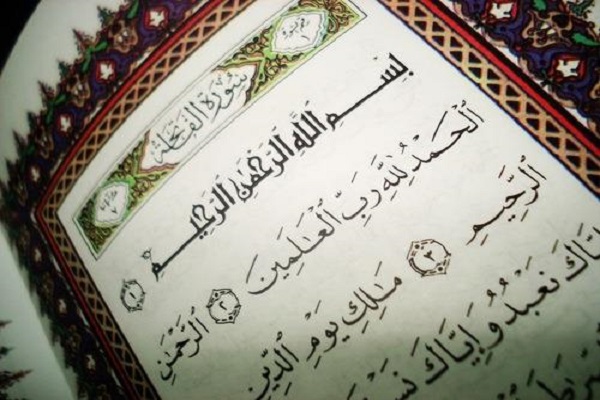 سُورَةُ الْفَاتِحَةِ
بِسْمِ اللَّهِ الرَّحْمَٰنِ الرَّحِيمِ ١
الْحَمْدُ لِلَّهِ رَبِّ الْعَٰلَمِينَ ٢ الرَّحْمَٰنِ
الرَّحِيمِ ٣ مَٰلِكِ يَوْمِ الدِّينِ
إِيَّاكَ نَعْبُدُ وَإِيَّاكَ